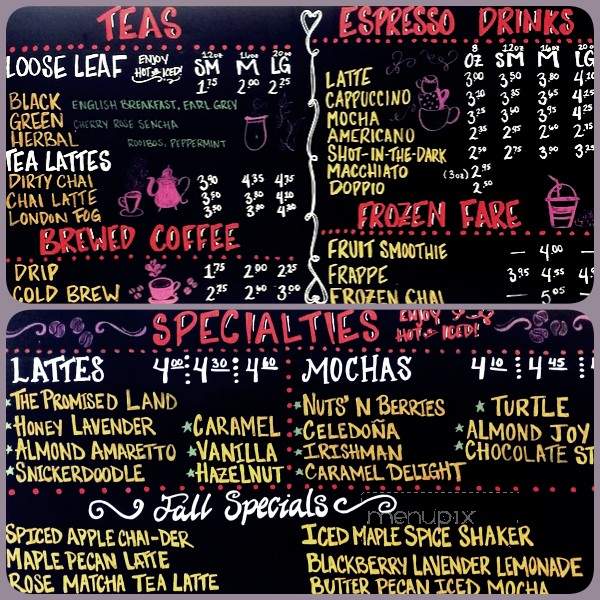 TEAS
LOOSE LEAF ENJOY HOT OR ICED! 12oz SM 16oz M 20oz LG
1.75 2.00 2.25
BLACK ENGLISH BREAKFAST, EARL GREY
GREEN CHERRY ROSE SENCHA
HERBAL ROOIBOS, PEPPERMINT
TEA LATTES
DIRTY CHAI 3.90 4.35 4.75
CHAI LATTE 3.50 3.80 4.10
LONDON FOG 3.50 3.80 4.30
BREWED COFFEE
DRIP 1.75 2.00 2.25
COLD BREW 2.25 2.50 3.00
ESPRESSO DRINKS
8 OZ 12oz SM 16oz M 20 LG
LATTE 3.00 3.50 3.80
CAPPUCCINO 3.00 3.50 3.90 4.25
MOCHA 3.25 3.60 3.95
AMERICANO 2.35 2.45 2.60 2.75
SHOT-IN-THE-DARK 2.50 2.75 3.00 3.25
MACCHIATO (3oz) 2.95
DOPPIO 2.50
FROZEN FARE
FRUIT SMOOTHIE — 4.00 —
FRAPPE 3.95 4.55
FROZEN CHAI — 5.05 —
SPECIALTIES
ENJOY HOT OR ICED!
LATTES 4.00 4.30 4.60
*THE PROMISED LAND
*HONEY LAVENDER *CARAMEL
*ALMOND AMARETTO *VANILLA
*SNICKERDOODLE *HAZELNUT
MOCHAS 4.10 4.45 4.
*NUTS'N BERRIES *TURTLE
*CELEDOÑA *ALMOND JOY
*IRISHMAN *CHOCOLATE ST
*CARAMEL DELIGHT
Fall Specials
SPICED APPLE CHAI-DER
MAPLE PECAN LATTE
ROSE MATCHA TEA LATTE
ICED MAPLE SPICE SHAKER
BLACKBERRY LAVENDER LEMONADE
BUTTER PECAN ICED MOCHA
menupix